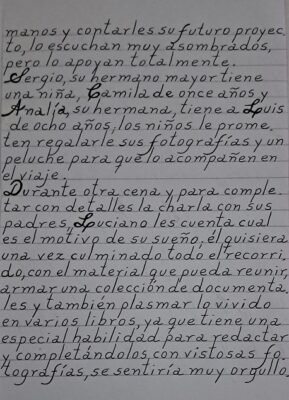 manos y contarles su futuro proyec-
to, lo escuchan muy asombrados,
pero lo apoyan totalmente.
Sergio, su hermano mayor tiene
una niña, Camila de once años y
Analía, su hermana, tiene a Luis
de ocho años, los niños le prome-
ten regalarle sus fotografías y un
peluche para que lo acompañen en
el viaje.
Durante otra cena y para comple-
tar con detalles la charla con sus
padres, Luciano les cuenta cual
es el motivo de su sueño, él quisiera
una vez culminado todo el recorri-
do, con el material que pueda reunir,
armar una colección de documenta-
les y también plasmar lo vivido
en varios libros, ya que tiene una
especial habilidad para redactar
y completándolos con vistosas fo-
tografías, se sentiría muy orgullo-